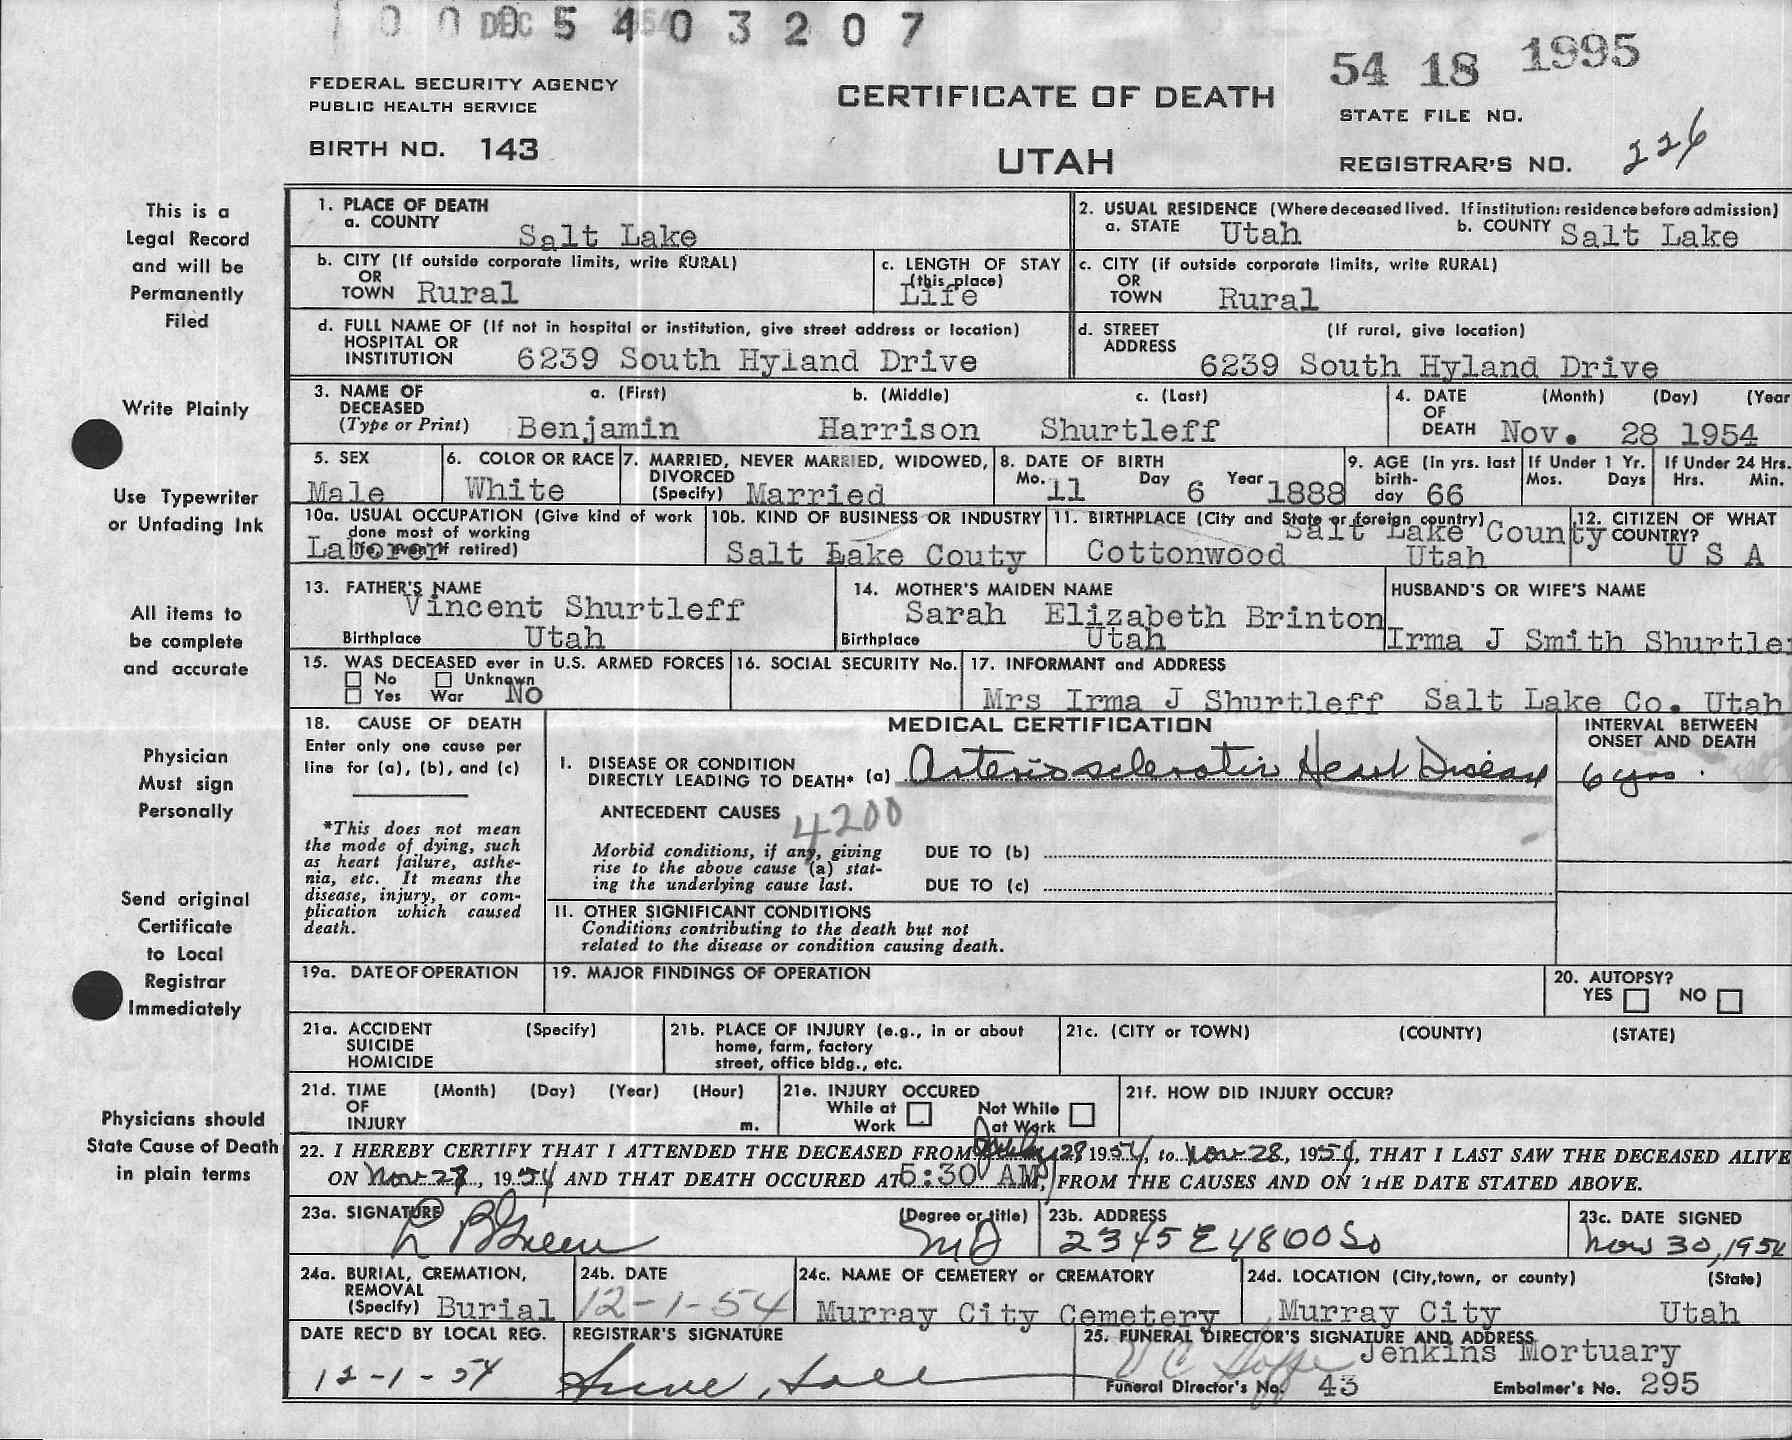 DEC 5 4 0 3 2 0 7
54 18 1995
FEDERAL SECURITY AGENCY
PUBLIC HEALTH SERVICE
CERTIFICATE OF DEATH
STATE FILE NO.
BIRTH NO. 143
UTAH
REGISTRAR'S NO. 226
This is a
Legal Record
and will be
Permanently
Filed
Write Plainly
Use Typewriter
or Unfading Ink
All items to
be complete
and accurate
Physician
Must sign
Personally
Send original
Certificate
to Local
Registrar
Immediately
Physicians should
State Cause of Death
in plain terms
1. PLACE OF DEATH
a. COUNTY Salt Lake
2. USUAL RESIDENCE (Where deceased lived. If institution: residence before admission)
a. STATE Utah b. COUNTY Salt Lake
b. CITY (If outside corporate limits, write RURAL)
OR
TOWN Rural
c. LENGTH OF STAY
(this place)
Life
c. CITY (if outside corporate limits, write RURAL)
OR
TOWN Rural
d. FULL NAME OF (If not in hospital or institution, give street address or location)
HOSPITAL OR
INSTITUTION 6239 South Hyland Drive
d. STREET (If rural, give location)
ADDRESS
6239 South Hyland Drive
3. NAME OF a. (First) b. (Middle) c. (Last)
DECEASED
(Type or Print) Benjamin Harrison Shurtleff
4. DATE (Month) (Day) (Year
OF
DEATH Nov. 28 1954
5. SEX
Male
6. COLOR OR RACE
White
7. MARRIED, NEVER MARRIED, WIDOWED,
DIVORCED
(Specify) Married
8. DATE OF BIRTH
Mo. 11 Day 6 Year 1888
9. AGE (In yrs. last
birth-
day 66
If Under 1 Yr.
Mos. Days
If Under 24 Hrs.
Hrs. Min.
10a. USUAL OCCUPATION (Give kind of work
done most of working
life, even if retired)
Laborer
10b. KIND OF BUSINESS OR INDUSTRY
Salt Lake Couty
11. BIRTHPLACE (City and State or foreign country)
Salt Lake County
Cottonwood Utah
12. CITIZEN OF WHAT
COUNTRY?
U S A
13. FATHER'S NAME
Vincent Shurtleff
Birthplace Utah
14. MOTHER'S MAIDEN NAME
Sarah Elizabeth Brinton
Birthplace Utah
HUSBAND'S OR WIFE'S NAME
Irma J Smith Shurtle
15. WAS DECEASED ever in U.S. ARMED FORCES
No Unknown
Yes War NO
16. SOCIAL SECURITY No.
17. INFORMANT and ADDRESS
Mrs Irma J Shurtleff Salt Lake Co. Utah
18. CAUSE OF DEATH
Enter only one cause per
line for (a), (b), and (c)
*This does not mean
the mode of dying, such
as heart failure, asthe-
nia, etc. It means the
disease, injury, or com-
plication which caused
death.
MEDICAL CERTIFICATION
INTERVAL BETWEEN
ONSET AND DEATH
I. DISEASE OR CONDITION
DIRECTLY LEADING TO DEATH* (a) Arteriosclerotic Heart Disease 6 yrs.
ANTECEDENT CAUSES 4200
Morbid conditions, if any, giving
rise to the above cause (a) stat-
ing the underlying cause last.
DUE TO (b)
DUE TO (c)
II. OTHER SIGNIFICANT CONDITIONS
Conditions contributing to the death but not
related to the disease or condition causing death.
19a. DATE OF OPERATION
19. MAJOR FINDINGS OF OPERATION
20. AUTOPSY?
YES NO
21a. ACCIDENT (Specify)
SUICIDE
HOMICIDE
21b. PLACE OF INJURY (e.g., in or about
home, farm, factory
street, office bldg., etc.
21c. (CITY or TOWN) (COUNTY) (STATE)
21d. TIME (Month) (Day) (Year) (Hour)
OF
INJURY m.
21e. INJURY OCCURED
While at Work Not While at Work
21f. HOW DID INJURY OCCUR?
22. I HEREBY CERTIFY THAT I ATTENDED THE DECEASED FROM 1954, to Nov 28, 1954, THAT I LAST SAW THE DECEASED ALIVE
ON Nov 1954 AND THAT DEATH OCCURED AT 5:30 AM, FROM THE CAUSES AND ON THE DATE STATED ABOVE.
23a. SIGNATURE (Degree or title)
L B Green MD
23b. ADDRESS
2345 E 4800 So
23c. DATE SIGNED
Nov 30, 1954
24a. BURIAL, CREMATION,
REMOVAL
(Specify) Burial
24b. DATE
12-1-54
24c. NAME OF CEMETERY or CREMATORY
Murray City Cemetery
24d. LOCATION (City, town, or county) (State)
Murray City Utah
DATE REC'D BY LOCAL REG.
12-1-54
REGISTRAR'S SIGNATURE
25. FUNERAL DIRECTOR'S SIGNATURE AND ADDRESS
Jenkins Mortuary
Funeral Director's No. 43 Embalmer's No. 295